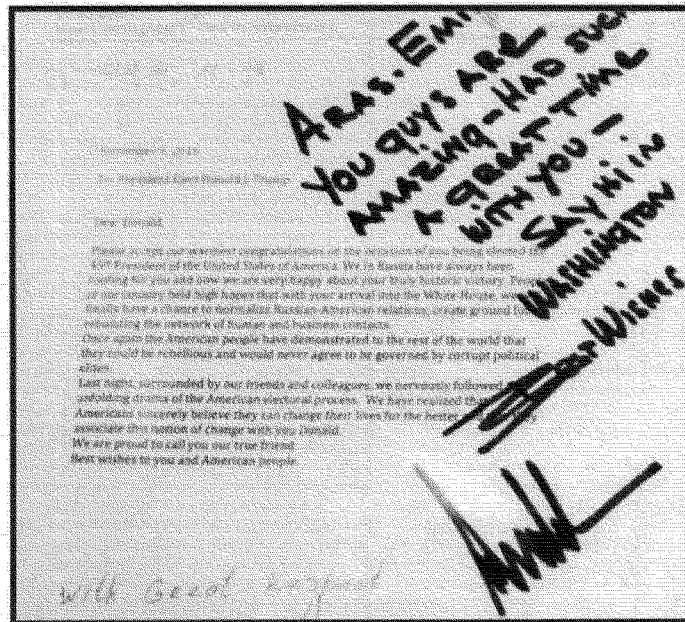 November 9, 2016
To: President Elect Donald J. Trump
Dear Donald
Please accept our warmest congratulations on the occasion of you being elected the
45th President of the United States of America. We in Russia have always been
rooting for you and now we are very happy about your truly historic victory. People
of our country held high hopes that with your arrival into the White House, we
finally have a chance to normalize Russian-American relations, create ground for
rebuilding the network of human and business contacts.
Once again the American people have demonstrated to the rest of the world that
they could be rebellious and would never agree to be governed by corrupt political
elites.
Last night, surrounded by our friends and colleagues, we nervously followed
unfolding drama of the American electoral process. We have realized
Americans sincerely believe they can change their lives for the better
associate this notion of change with you Donald.
We are proud to call you our true friend.
Best wishes to you and American people.
With Great Respect
ARAS. EMI
YOU GUYS ARE
AMAZING - HAD SUCH
A GREAT TIME
WITH YOU -
SAY HI IN
WASHINGTON
BEST WISHES